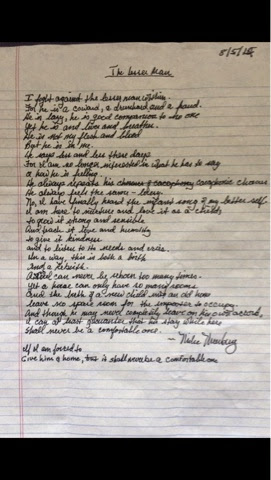 8/5/15
The Lesser Man
I fight against the lesser man within.
For he is a coward, a drunkard and a fraud.
He is lazy, he is good companion to no one
Yet he is and lives and breathes.
He is not my flesh and blood
But he is in me.
He says less and less these days
For I am no longer interested in what he has to say
or how he is feeling.
He always repeats his cacophonic
He always tells the same
No, I have finally heard the infant song of my better self.
I am here to nurture and love it as a child,
to grow it strong and sensible
And teach it love and humility
to give it kindness
and to listen to its needs and
In a way, this is both a birth
and a rebirth.
can never be reborn too many times.
Yet a home can only have so many rooms.
And the birth of a new child into an old home
leaves no spare room for the imposter to occupy.
And though he may never completely leave on his own accord,
I can at least guarantee that his stay while here
Shall never be a comfortable one.
If I am forced to
Give him a home, it shall never be a comfortable one